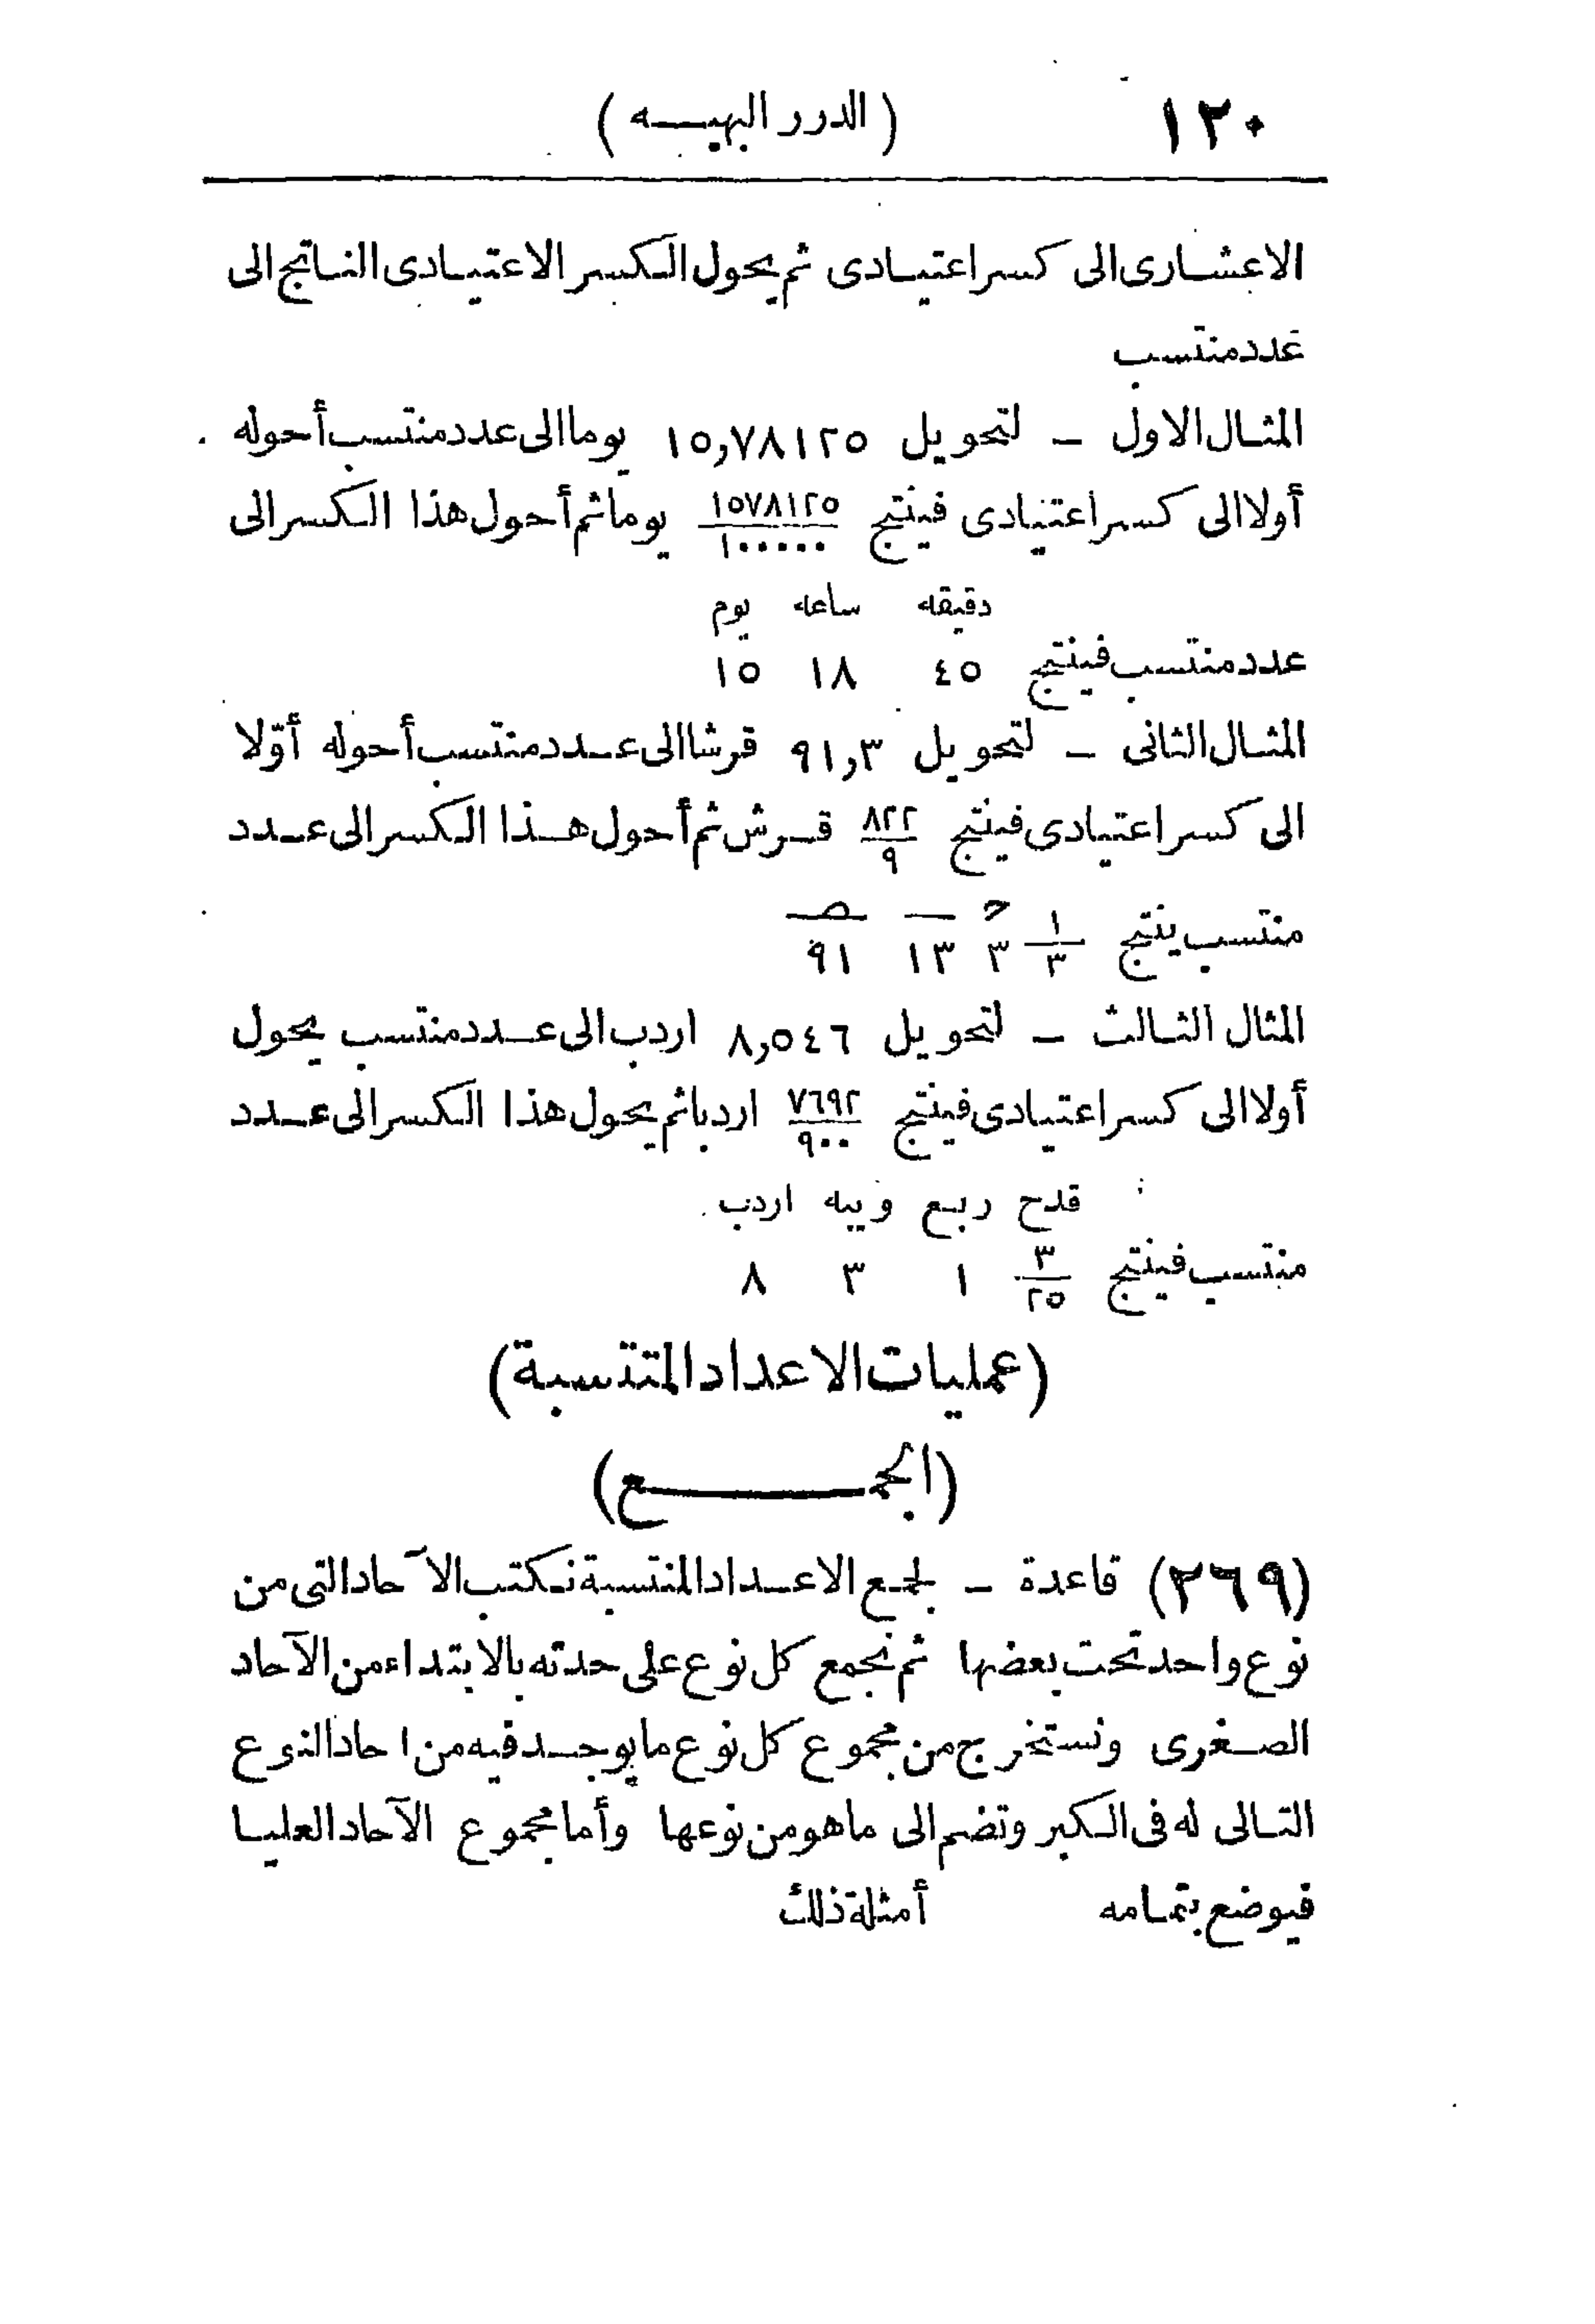 ١٢٠ (الدرر البهيــه)
الاعشارى الى كسر اعتيادى ثم يحول الكسر الاعتيادى الناتج الى
عدد منتسب
المثال الاول ــ لتحويل ١٥,٧٨١٢٥ يوما الى عدد منتسب أحوله
أولا الى كسر اعتيادى فينتج ١٥٧٨١٢٥/١٠٠٠٠٠ يوما ثم أحول هذا الكسر الى
دقيقه ساعه يوم
عدد منتسب فينتج ٤٥ ١٨ ١٥
المثال الثانى ــ لتحويل ٩١,٣ قرشا الى عدد منتسب أحوله أوّلا
الى كسر اعتيادى فينتج ٨٢٢/٩ قرش ثم أحول هذا الكسر الى عدد
منتسب ينتج ١/٣ ٣ ١٣ ٩١
المثال الثالث ــ لتحويل ٨,٥٤٦ اردب الى عدد منتسب يحول
أولا الى كسر اعتيادى فينتج ٧٦٩٢/٩٠٠ اردبا ثم يحول هذا الكسر الى عدد
قدح ربع ويبه اردب
منتسب فينتج ٣/٢٥ ١ ٣ ٨
(عمليات الاعداد المتتسبة)
(الجمــع)
(٢٦٩) قاعدة ــ لجمع الاعداد المنتسبة نكتب الآحاد التى من
نوع واحد تحت بعضها ثم نجمع كل نوع على حدته بالابتداء من الآحاد
الصغرى ونستخرج من مجموع كل نوع ما يوجد فيه من احاد النوع
التالى له فى الكبر وتضم الى ما هو من نوعها وأما مجموع الآحاد العليا
فيوضع بتمامه أمثلة ذلك